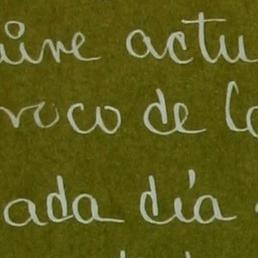 aire actu
roco de lo
ada día